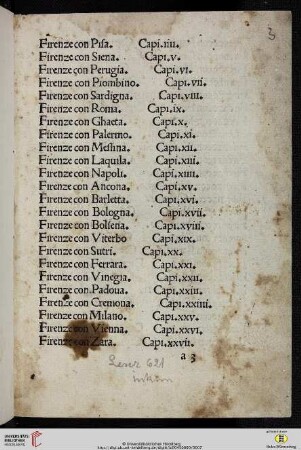 3
Firenze con Pisa. Capi.iiii.
Firenze con Siena. Capi.v.
Firenze con Perugia. Capi.vi.
Firenze con Piombino. Capi.vii.
Firenze con Sardigna. Capi.viii.
Firenze con Roma. Capi.ix.
Firenze con Ghaeta. Capi.x.
Firenze con Palermo. Capi.xi.
Firenze con Messina. Capi.xii.
Firenze con Laquila. Capi.xiii.
Firenze con Napoli. Capi.xiiii.
Firenze con Ancona. Capi.xv.
Firenze con Barletta. Capi.xvi.
Firenze con Bologna. Capi.xvii.
Firenze con Bolsena. Capi.xviii.
Firenze con Viterbo Capi.xix.
Firenze con Sutri. Capi.xx.
Firenze con Ferrara. Capi.xxi.
Firenze con Vinegia. Capi.xxii.
Firenze con Padoua. Capi.xxiii.
Firenze con Cremona. Capi.xxiiii.
Firenze con Milano. Capi.xxv.
Firenze con Vienna. Capi.xxvi.
Firenze con Zara. Capi.xxvii.
a 3